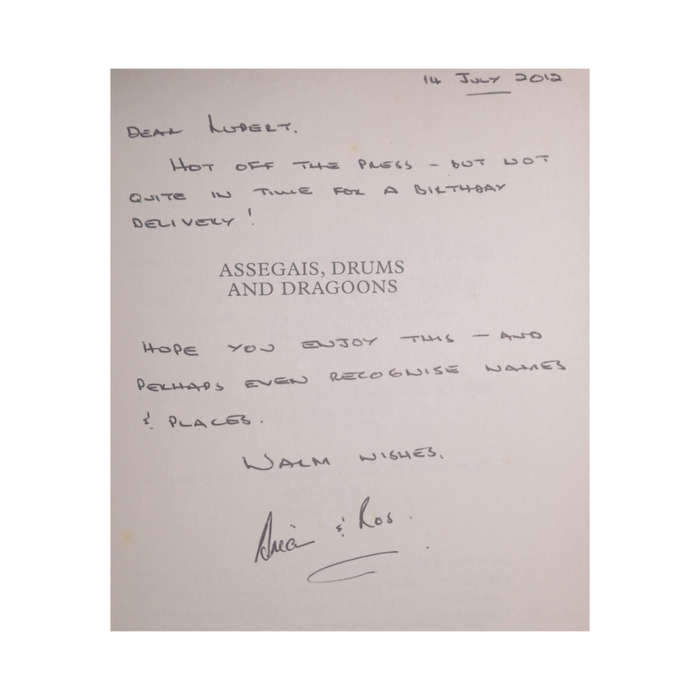 14 JULY 2012
DEAR RUPERT.
HOT OFF THE PRESS – BUT NOT
QUITE IN TIME FOR A BIRTHDAY
DELIVERY!
ASSEGAIS, DRUMS
AND DRAGOONS
HOPE YOU ENJOY THIS – AND
PERHAPS EVEN RECOGNISE NAMES
& PLACES.
WARM WISHES.
& Ros.